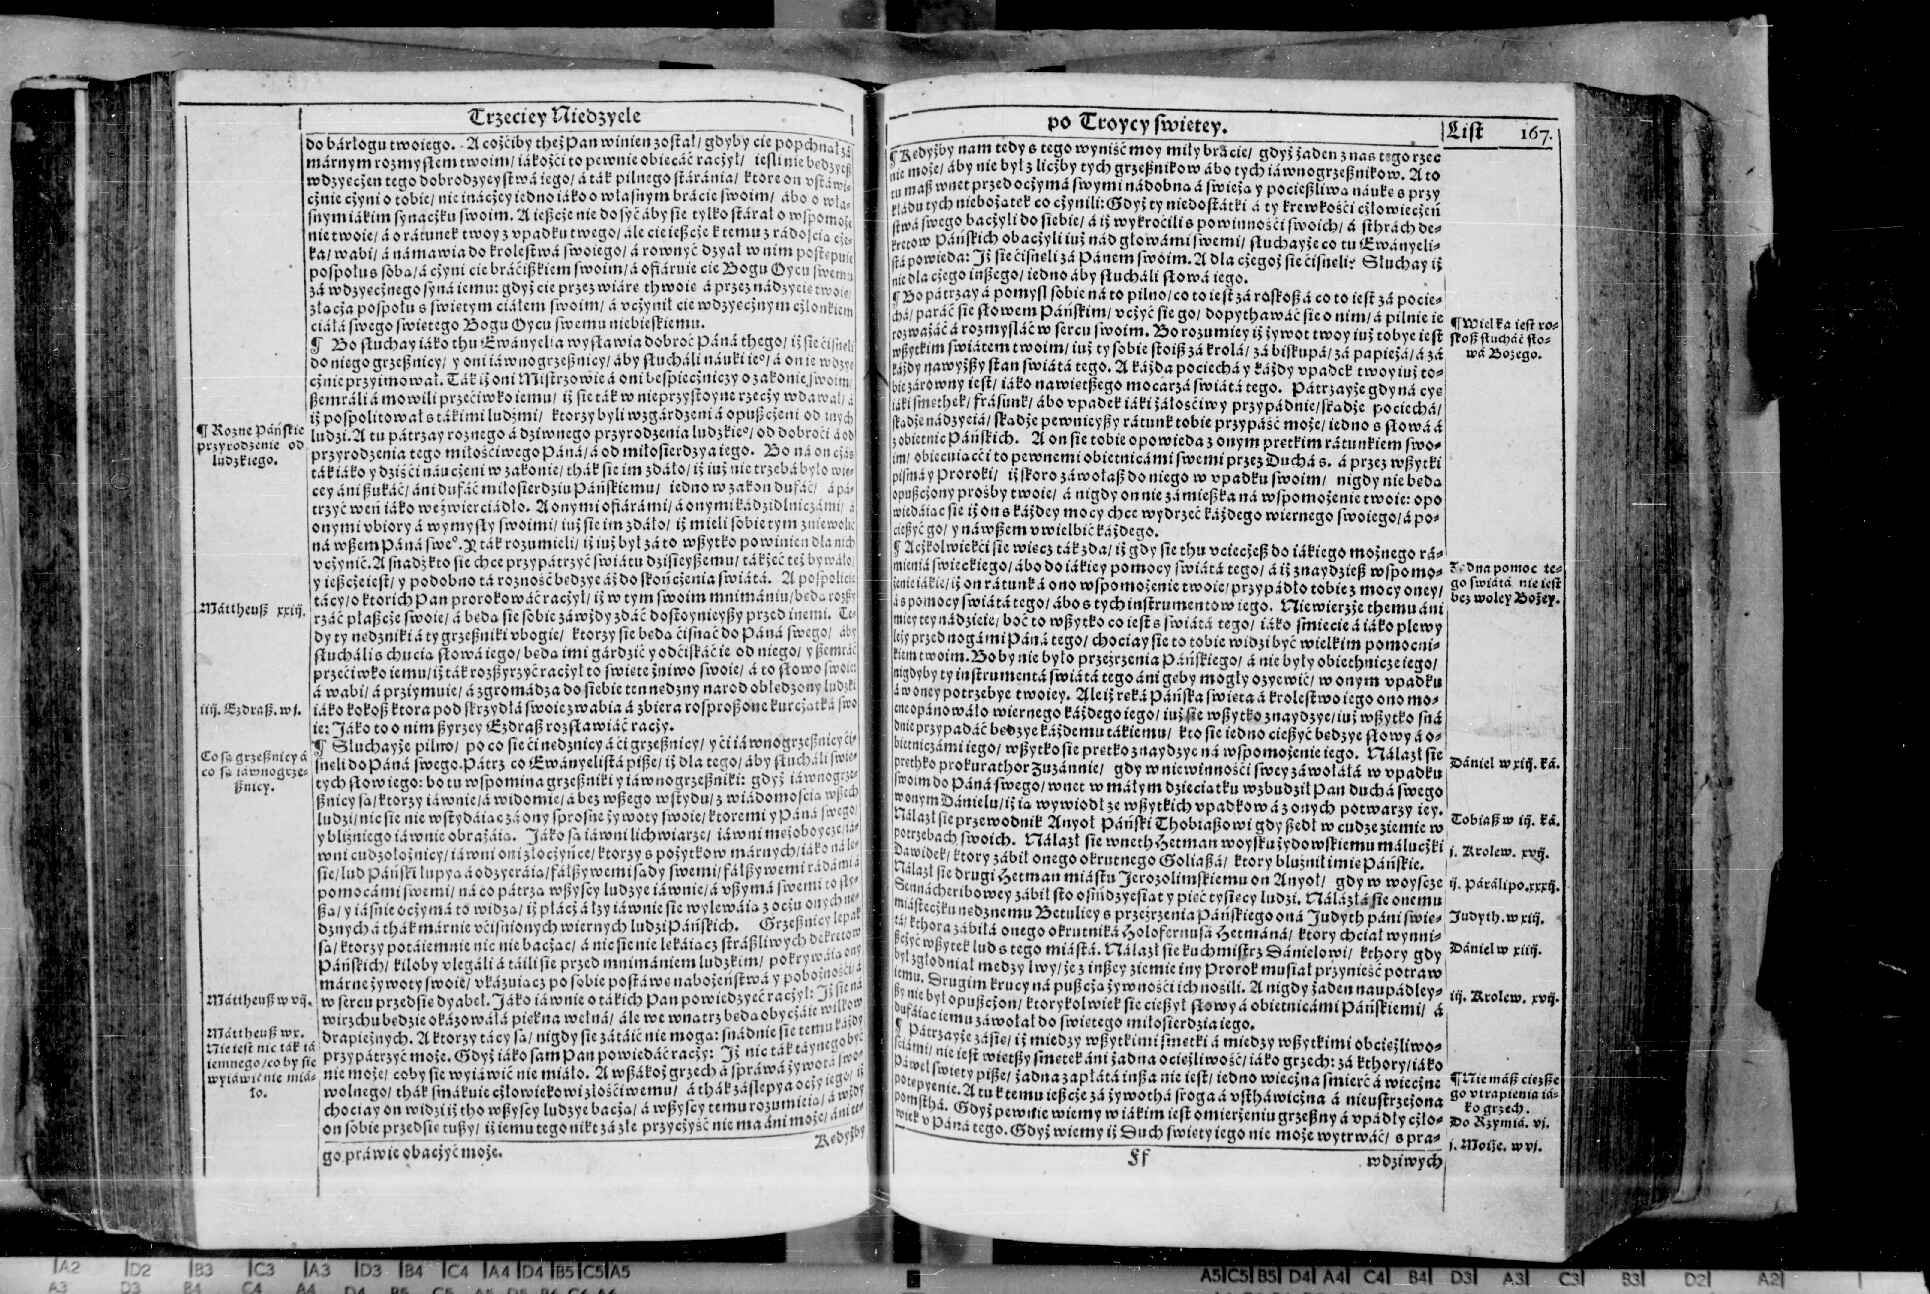 Trzeciey Niedzyele
do bárłogu twoiego. A cożciby theż Pan winien został/ gdyby cie popchnął zá
márnym rozmysłem twoim/ iákożci to pewnie obiecáć raczył/ iesli nie bedzyesz
wdzyeczen tego dobrodzyeystwá iego/ á ták pilnego stáránia/ ktore on vstáwi-
cznie czyni o tobie/ nie ináczey iedno iáko o własnym brácie swoim/ ábo o wła-
snym iákim synaczku swoim. A ieszcze nie dosyć áby sie tylko stárał o wspomoże
nie twoie/ á o rátunek twoy z vpadku twego/ ále cie ieszcze k temu z rádością cze-
ka/ wabi/ á námawia do krolestwá swoiego/ á rownyć dzyał w nim postepuie
pospołu s sobą/ á czyni cie bráciszkiem swoim/ á ofiáruie cie Bogu Oycu swemu
zá wdzyecznego syná iemu: gdyż cie przez wiáre thwoie á przez nádzyeie twoie/
złącza pospołu s swietym ciáłem swoim/ á vczynił cie wdzyecznym członkiem
ciáłá swego swietego Bogu Oycu swemu niebieskiemu.
¶ Bo słuchay iáko thu Ewányelia wystáwia dobroć Páná thego/ iż sie cisneli
do niego grzesznicy/ y oni iáwnogrzesznicy/ áby słucháli náuki ieº/ á on ie wdzye
cznie przyimował. Ták iż oni Mistrzowie á oni bespieczniczy o zakonie swoim/
szemráli á mowili przeciwko iemu/ iż sie ták w nieprzystoyne rzeczy wdawał/ á
iż pospolitował s tákimi ludźmi/ ktorzy byli wzgárdzeni á opuszczeni od inych
ludzi. A tu pátrzay roznego á dziwnego przyrodzenia ludzkieº/ od dobroci á od
przyrodzenia tego miłościwego Páná/ á od miłosierdzya iego. Bo ná on czás
ták iáko y dziści náuczeni w zakonie/ thák sie im zdáło/ iż iuż nie trzebá było wie-
cey áni szukáć/ áni dufáć miłosierdziu Páńskiemu/ iedno w zakon dufáć/ á pá-
trzyć weń iáko we źwierciádło. A onymi ofiárámi/ á onymi kádzidlniczámi/ á
onymi vbiory á wymysły swoimi/ iuż sie im zdáło/ iż mieli sobie tym zniewolić
ná wszem Páná sweº. Y ták rozumieli/ iż iuż był zá to wszytko powinien dla nich
vczynić. A snadź kto sie chce przypátrzyć swiátu dzisieyszemu/ tákżeć też bywáło/
y ieszcze iest/ y podobno tá rozność bedzye áż do skończenia swiátá. A pospolicie
tácy/ o ktorich Pan prorokowáć raczył/ iż w tym swoim mnimániu/ bedą rozszy
rzáć płaszcze swoie/ á bedą sie sobie záwżdy zdáć dostoynieyszy przed inemi. Te-
dy ty nedzniki á ty grzeszniki vbogie/ ktorzy sie bedą cisnąć do Páná swego/ áby
słucháli s chucią słowá iego/ bedą imi gárdzić y odciskáć ie od niego/ y szemráć
przeciwko iemu/ iż ták rozszyrzyć raczył to swiete żniwo swoie/ á to słowo swoie:
á wabi/ á przyimuie/ á zgromadza do siebie ten nedzny narod obłedzony ludzki
iáko kokosz ktora pod skrzydłá swoie zwabia á zbiera rosproszone kurczątká swo
ie: Jáko to o nim szyrzey Ezdrasz rozsławiáć raczy.
¶ Słuchayże pilno/ po co sie ci nedznicy á ci grzesznicy/ y ci iáwnogrzesznicy ci-
sneli do Páná swego. Pátrz co Ewányelistá pisze/ iż dla tego/ áby słucháli swie-
tych słow iego: bo tu wspomina grzeszniki y iáwnogrzeszniki: gdyż iáwnogrze-
sznicy są/ ktorzy iáwnie/ á widomie/ á bez wszego wstydu/ z wiádomością wszech
ludzi/ nic sie nie wstydáiąc zá ony sprosne żywoty swoie/ ktoremi y Páná swego/
y bliźniego iáwnie obrażáią. Jáko są iáwni lichwiarze/ iáwni meżoboyce/ iá-
wni cudzołożnicy/ iáwni oni złoczyńce/ ktorzy s pożytkow márnych/ iáko ná le-
sie/ lud Páński łupyą á odzyeráią/ fałszywemi sądy swemi/ fałszywemi rádámi á
pomocámi swemi/ ná co pátrzą wszyscy ludzye iáwnie/ á vszymá swemi to sły-
szą/ y iáśnie oczymá to widzą/ iż płácz á łzy iáwnie sie wylewáią z oczu onych ne-
dznych á thák márnie vciśnionych wiernych ludzi Páńskich. Grzesznicy lepak
są/ ktorzy potáiemnie nic nie bacząc/ á nic sie nie lekáiąc strászliwych dekretow
Páńskich/ kiloby vlegáli á táili sie przed mnimániem ludzkim/ pokrywáią ony
márne żywoty swoie/ vkázuiąc po sobie postáwe nabożeństwá y pobożności/ á
w sercu przedsie dyabeł. Jáko iáwnie o tákich Pan powiedzyeć raczył: Iż sie ná
wirzchu bedzie okázowáłá piekna wełná/ ále we wnątrz bedą obyczáie wilkow
drapieżnych. A ktorzy tácy są/ nigdy sie zátáić nie mogą: snádnie sie temu káżdy
przypátrzyć może. Gdyż iáko sam Pan powiedáć raczy: Iż nic ták táynego być
nie może/ coby sie wyiáwić nie miáło. A wszákoż grzech á spráwá żywotá swo-
wolnego/ thák smákuie człowiekowi złościwemu/ á thák záslepya oczy iego/ iż
chociay on widzi iż tho wszyscy ludzye baczą/ á wszyscy temu rozumieią/ á wżdy
on sobie przedsie tuszy/ iż iemu tego nikt zá złe przyczyść nie ma áni może/ áni te-
go práwie obaczyć może.
Kedyżby
¶ Rozne Páńskie
przyrodzenie od
ludzkiego.
Máttheusz xxiij.
iiij. Ezdrasz. wj.
Co są grzesznicy á
co są iáwnogrze-
sznicy.
Máttheusz w vij.
Máttheusz w x.
Nie iest nic ták tá
iemnego/ co by sie
wyiáwić nie miá-
ło.
po Troycy swietey.
List 167.
¶ Kedyżby nam tedy s tego wyniść moy miły brácie/ gdyż żaden z nas tego rzec
nie może/ áby nie był z liczby tych grzesznikow ábo tych iáwnogrzesznikow. A to
tu masz wnet przed oczymá swymi nadobną á swieżą y pocieszliwą náuke s przy
kłádu tych niebożątek co czynili: Gdyż ty niedostátki á ty krewkości człowieczeń
stwá swego baczyli do siebie/ á iż wykroczili s powinności swoich/ á sthrách de-
kretow Páńskich obaczyli iuż nád głowámi swemi/ słuchayże co tu Ewányeli-
stá powiedá: Iż sie cisneli zá Pánem swoim. A dla czegoż sie cisneli? Słuchay iż
nie dla czego inszego/ iedno áby słucháli słowá iego.
¶ Bo pátrzay á pomysl sobie ná to pilno/ co to iest zá roskosz á co to iest zá pocie-
chá/ paráć sie słowem Páńskim/ vczyć sie go/ dopythawáć sie o nim/ á pilnie ie
rozważáć á rozmysláć w sercu swoim. Bo rozumiey iż żywot twoy iuż tobye iest
wszytkim swiátem twoim/ iuż ty sobie stoisz zá krolá/ zá biskupá/ zá papieżá/ á zá
káżdy nawyższy stan swiátá tego. A káżda pociechá y káżdy vpadek twoy iuż to-
bie zárowny iest/ iáko nawietszego mocarzá swiátá tego. Pátrzayże gdy ná cye
iáki smethek/ frásunk/ ábo vpadek iáki żáłościwy przypádnie/ skądże pociechá/
skądże nádzyeiá/ skądże pewnieyszy rátunk tobie przypáść może/ iedno s słowá á
z obietnic Páńskich. A on sie tobie opowieda z onym pretkim rátunkiem swo-
im/ obiecuiącci to pewnemi obietnicámi swemi przez Duchá s. á przez wszytki
pismá y Proroki/ iż skoro záwołasz do niego w vpadku swoim/ nigdy nie bedą
opuszczony prośby twoie/ á nigdy on nie zámieszka ná wspomożenie twoie: opo
wiedáiąc sie iż on s káżdey mocy chce wydrzeć káżdego wiernego swoiego/ á po-
cieszyć go/ y ná wszem vwielbić káżdego.
¶ Aczkolwiekci sie wiecz ták zda/ iż gdy sie thu vcieczesz do iákiego możnego rá-
mienia swieckiego/ ábo do iákiey pomocy swiátá tego/ á iż znaydziesz wspomo-
żenie iákie/ iż on rátunk á ono wspomożenie twoie/ przypádło tobie z mocy oney/
á s pomocy swiátá tego/ ábo s tych instrumentow iego. Niewierzże themu áni
miey tey nádzieie/ boć to wszytko co iest s swiátá tego/ iáko smiecie á iáko plewy
leży przed nogámi Páná tego/ chociay sie to tobie widzi być wielkim pomocni-
kiem twoim. Bo by nie było przeźrzenia Páńskiego/ á nie były obiethnicze iego/
nigdyby ty instrumentá swiátá tego áni geby mogły ożywić/ w onym vpadku
á w oney potrzebye twoiey. Ale iż reká Páńska swieta á krolestwo iego ono mo-
cne opánowáło wiernego káżdego iego/ iuż sie wszytko znaydzye/ iuż wszytko sná
dnie przypádáć bedzye káżdemu tákiemu/ kto sie iedno cieszyć bedzye słowy á o-
bietniczámi iego/ wszytko sie pretko znaydzye ná wspomożenie iego. Nálazł sie
prethko prokurathor Zuzánnie/ gdy w niewinności swey záwołáłá w vpadku
swoim do Páná swego/ wnet w máłym dzieciątku wzbudził Pan duchá swego
w onym Dánielu/ iż ią wywiodł ze wszytkich vpadkow á z onych potwarzy iey.
Nálazł sie przewodnik Anyoł Páński Thobiaszowi gdy szedł w cudze ziemie w
potrzebach swoich. Nálazł sie wneth Hetman woysku żydowskiemu máluczki
Dawidek/ ktory zábił onego okrutnego Goliaszá/ ktory bluźnił imie Páńskie.
Nálazł sie drugi Hetman miástu Jerozolimskiemu on Anyoł/ gdy w woyscze
Sennácheribowey zábił sto ośmdzyesiąt y pieć tysiecy ludzi. Nálázłá sie onemu
miásteczku nedznemu Betuliey s przeźrzenia Páńskiego oná Judyth páni swie-
tá/ kthora zábiłá onego okrutniká Holofernusá Hetmáná/ ktory chciał wynni-
szczyć wszytek lud s tego miástá. Nálazł sie kuchmistrz Dánielowi/ kthory gdy
był zgłodniał miedzy lwy/ że z inszey ziemie iny Prorok musiał przynieść potraw
iemu. Drugim krucy ná puszczą żywności ich nosili. A nigdy żaden naupádley-
szy nie był opuszczon/ ktorykolwiek sie cieszył słowy á obietnicámi Páńskiemi/ á
dufáiąc iemu záwołał do swietego miłosierdzia iego.
¶ Pátrzayże zásie/ iż miedzy wszytkimi smetki á miedzy wszytkimi obciężliwo-
ściámi/ nie iest wietszy smetek áni żadna ociężliwość/ iáko grzech: zá kthory/ iáko
Páweł swiety pisze/ żadna zapłátá insza nie iest/ iedno wieczna smierć á wieczne
potepyenie. A tu k temu ieszcze zá żywothá sroga á vstháwiczna á nieustrzeżona
pomsthá. Gdyż pewnie wiemy w iákim iest omierzeniu grzeszny á vpádły czło-
wiek v Páná tego. Gdyż wiemy iż Duch swiety iego nie może wytrwáć/ s prá-
Ff
wdziwych
¶ Wielka iest ro-
skosz słucháć sło-
wá Bożego.
Żadna pomoc te-
go swiátá nie iest
bez woley Bożey.
Dániel w xiij. ká.
Tobiasz w iij. ká.
j. Krolew. xvij.
ij. Párálipo. xxxij.
Judyth. w xiij.
Dániel w xiiij.
iij. Krolew. xvij.
¶ Nie mász cięższe
go vtrapienia iá-
ko grzech.
Do Rzymiá. vj.
j. Moiże. w vj.